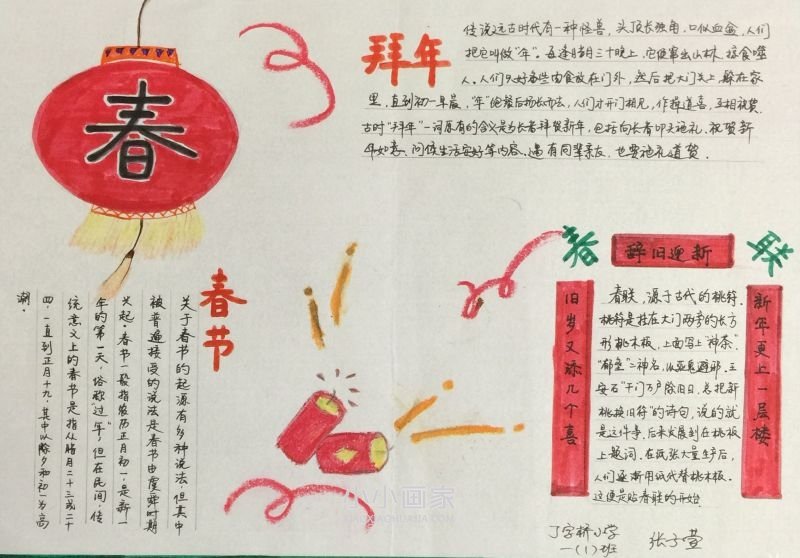 春
拜年
传说远古时代有一种怪兽,头顶长独角,口似血盆,人们
把它叫做"年"。每逢腊月三十晚上,它便窜出山林,掠食噬
人。人们只好备些肉食放在门外,然后把大门关上,躲在家
里,直到初一早晨,"年"饱餐后扬长而去,人们才开门相见,作揖道喜,互相祝贺
古时"拜年"一词原有的含义是为长者拜贺新年,包括向长者叩头施礼、祝贺新
年如意、问候生活安好等内容。遇有同辈亲友,也要施礼道贺.
春节
关于春节的起源有多种说法,但其中
被普遍接受的说法是春节由虞舜时期
兴起。春节一般指农历正月初一,是新一
年的第一天,俗称"过年"但在民间,传
统意义上的春节是指从腊月二十三或二十
四,一直到正月十九,其中以除夕和初一为高
潮.
春联
辞旧迎新
旧岁又添几个喜
新年更上一层楼
春联,源于古代的桃符.
桃符是挂在大门两旁的长方
形桃木板,上面写上"神荼.
"郁垒"二神名,以驱鬼避邪,王
安石"千门万户曈旧日,总把新
桃换旧符"的诗句,说的就
是这件事,后来发展到在桃板
上题词,在纸张大量生产后,
人们逐渐用纸代替桃木板.
这便是贴春联的开始
丁字桥小学
一(1)班
张子萱
小小画家
XIAOXIAOHUAJIA.COM